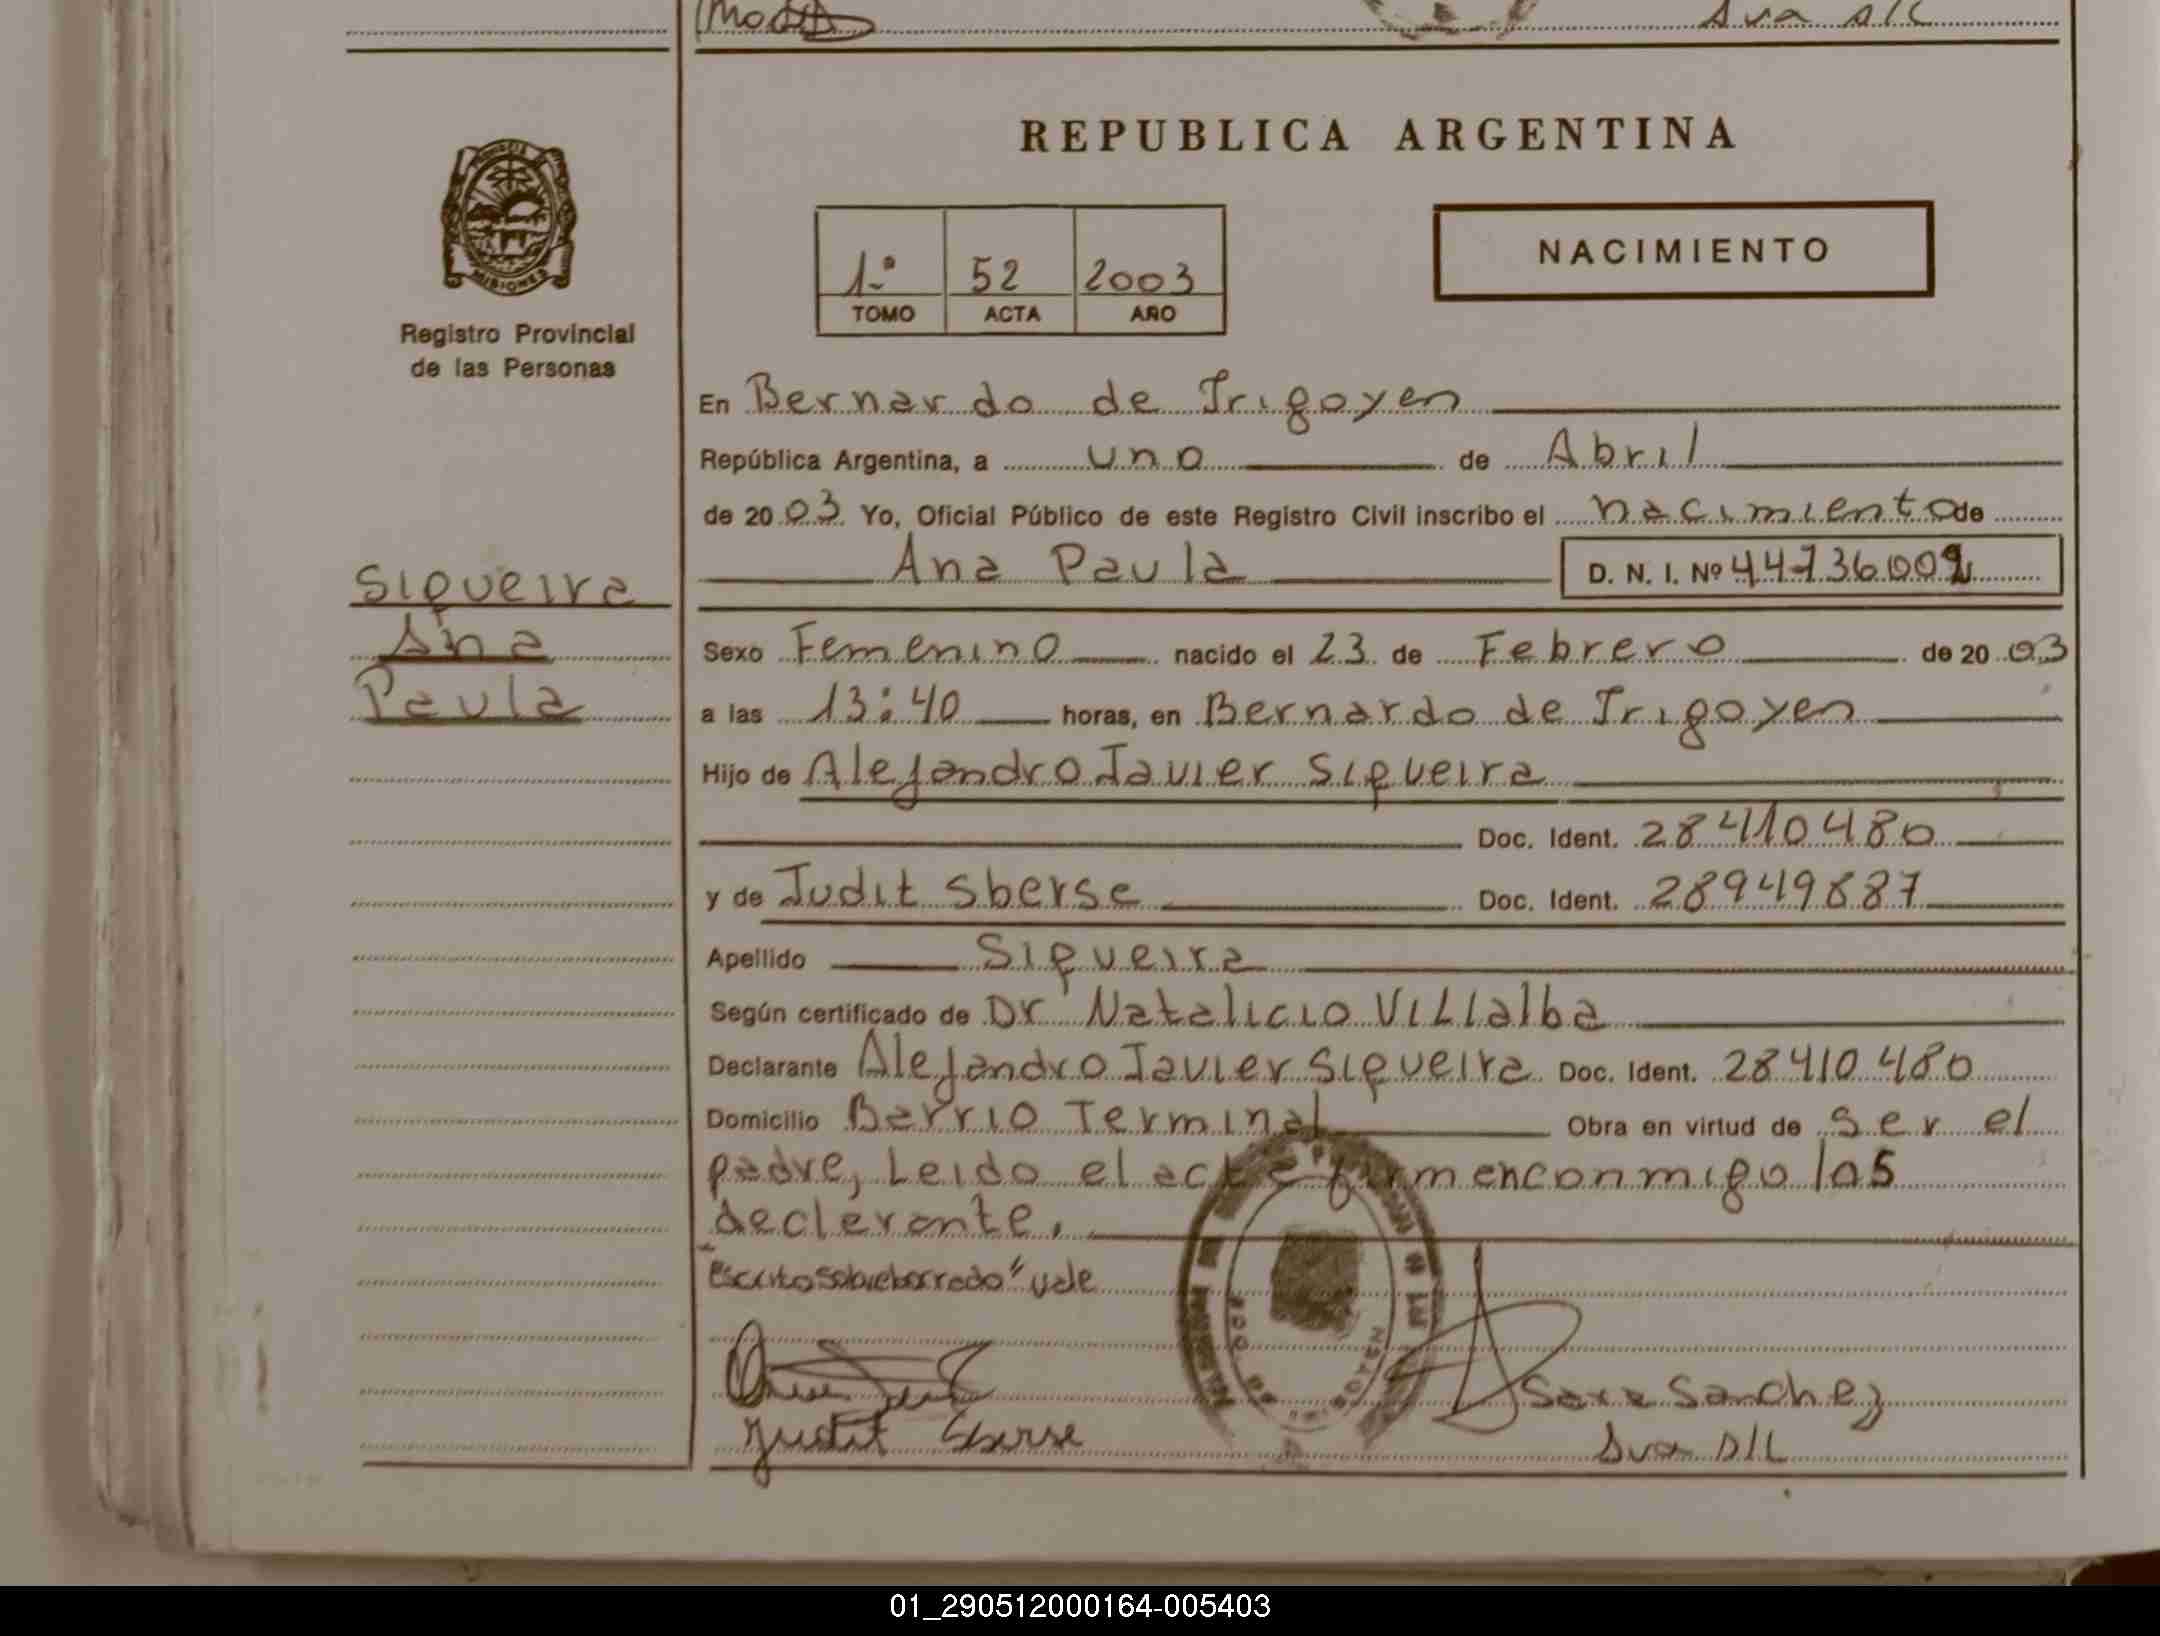 Sva D/C
REPUBLICA ARGENTINA
PROVINCIA DE
MISIONES
1º 52 2003
TOMO ACTA AÑO
NACIMIENTO
Registro Provincial
de las Personas
En Bernardo de Irigoyen
República Argentina, a uno de Abril
de 2003 Yo, Oficial Público de este Registro Civil inscribo el nacimiento de
Ana Paula D. N. I. Nº
Siqueira
Ana
Paula
Sexo Femenino nacido el 23 de Febrero de 2003
a las 13:40 horas, en Bernardo de Irigoyen
Hijo de Alejandro Javier Siqueira
Doc. Ident. 28410480
y de Judit Sberse Doc. Ident. 28949887
Apellido Siqueira
Según certificado de Dr Natalicio Villalba
Declarante Alejandro Javier Siqueira Doc. Ident. 28410480
Domicilio Barrio Terminal Obra en virtud de ser el
padre, Leido el acta firman conmigo los
declarante.
Escrito sobreborrado" vale
Judit Sberse
Sara Sanchez
Sva D/C
01_290512000164-005403